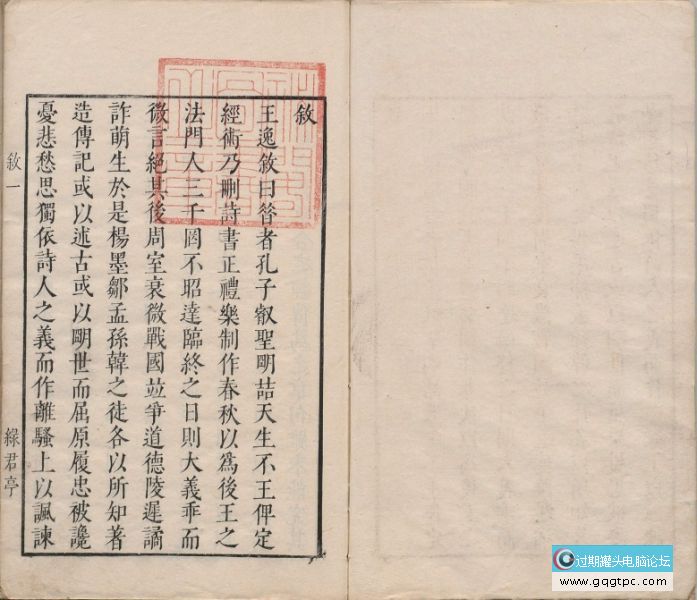 敘
王逸敘曰昝者孔子叡聖明喆天生不王俾定
經術乃刪詩書正禮樂制作春秋以爲後王之
法門人三千罔不昭達臨終之日則大義乖而
微言絕其後周室衰微戰國竝爭道德陵遲譎
詐萌生於是楊墨鄒孟孫韓之徒各以所知著
造傳記或以述古或以明世而屈原履忠被讒
憂悲愁思獨依詩人之義而作離騷上以諷諫
敘一
綠君亭
过期罐头电脑论坛
www.gqgtpc.com